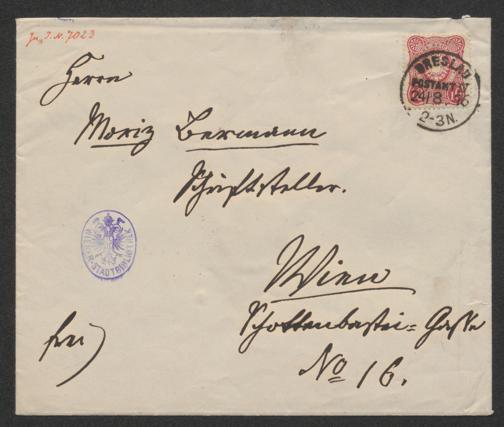 Zu J.N. 7023
Herrn
BRESLAU
POSTAMT
24/8
2-3N.
Moriz Bermann
Schriftsteller.
WIENER-STADTBIBLIOTHEK
Wien
Schottenbastei=Gasse
frei
No 16.